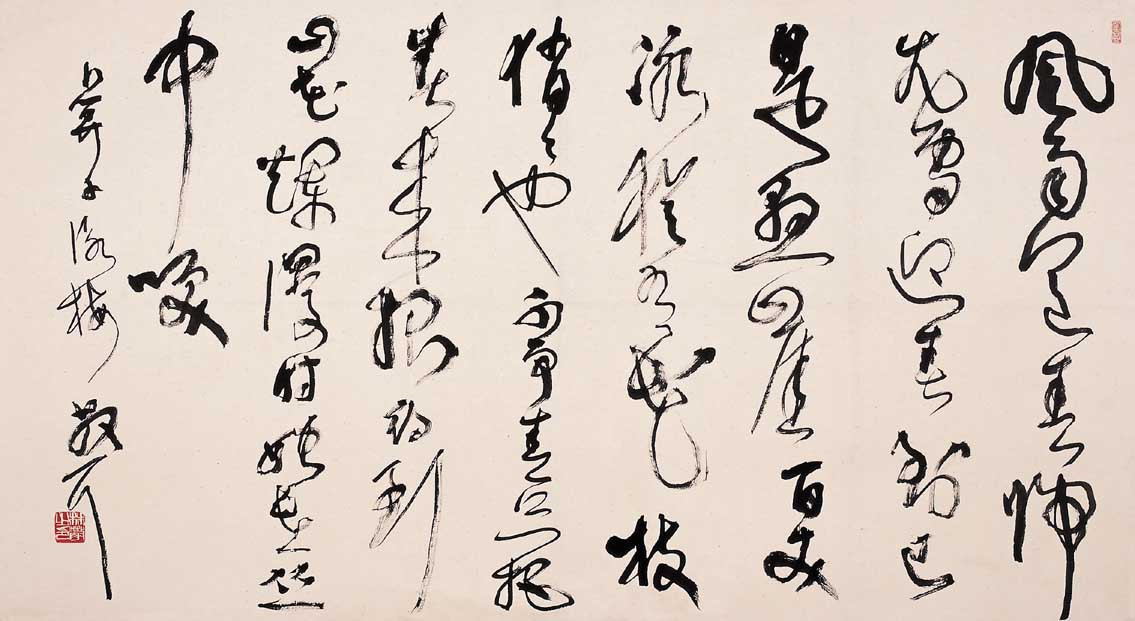 风雨送春归
飞雪迎春到已
是悬崖百丈
冰犹有花枝
俏俏也不争春只把
春来报待到
山花烂漫时她在丛
中笑
卜算子咏梅 散耳